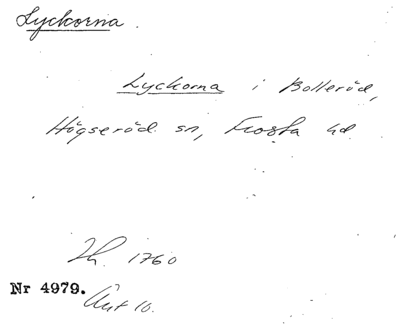 Lyckorna.
Lyckorna i Bolleröd,
Högseröd sn, Frosta hd
1760
Nr 4979.
10.